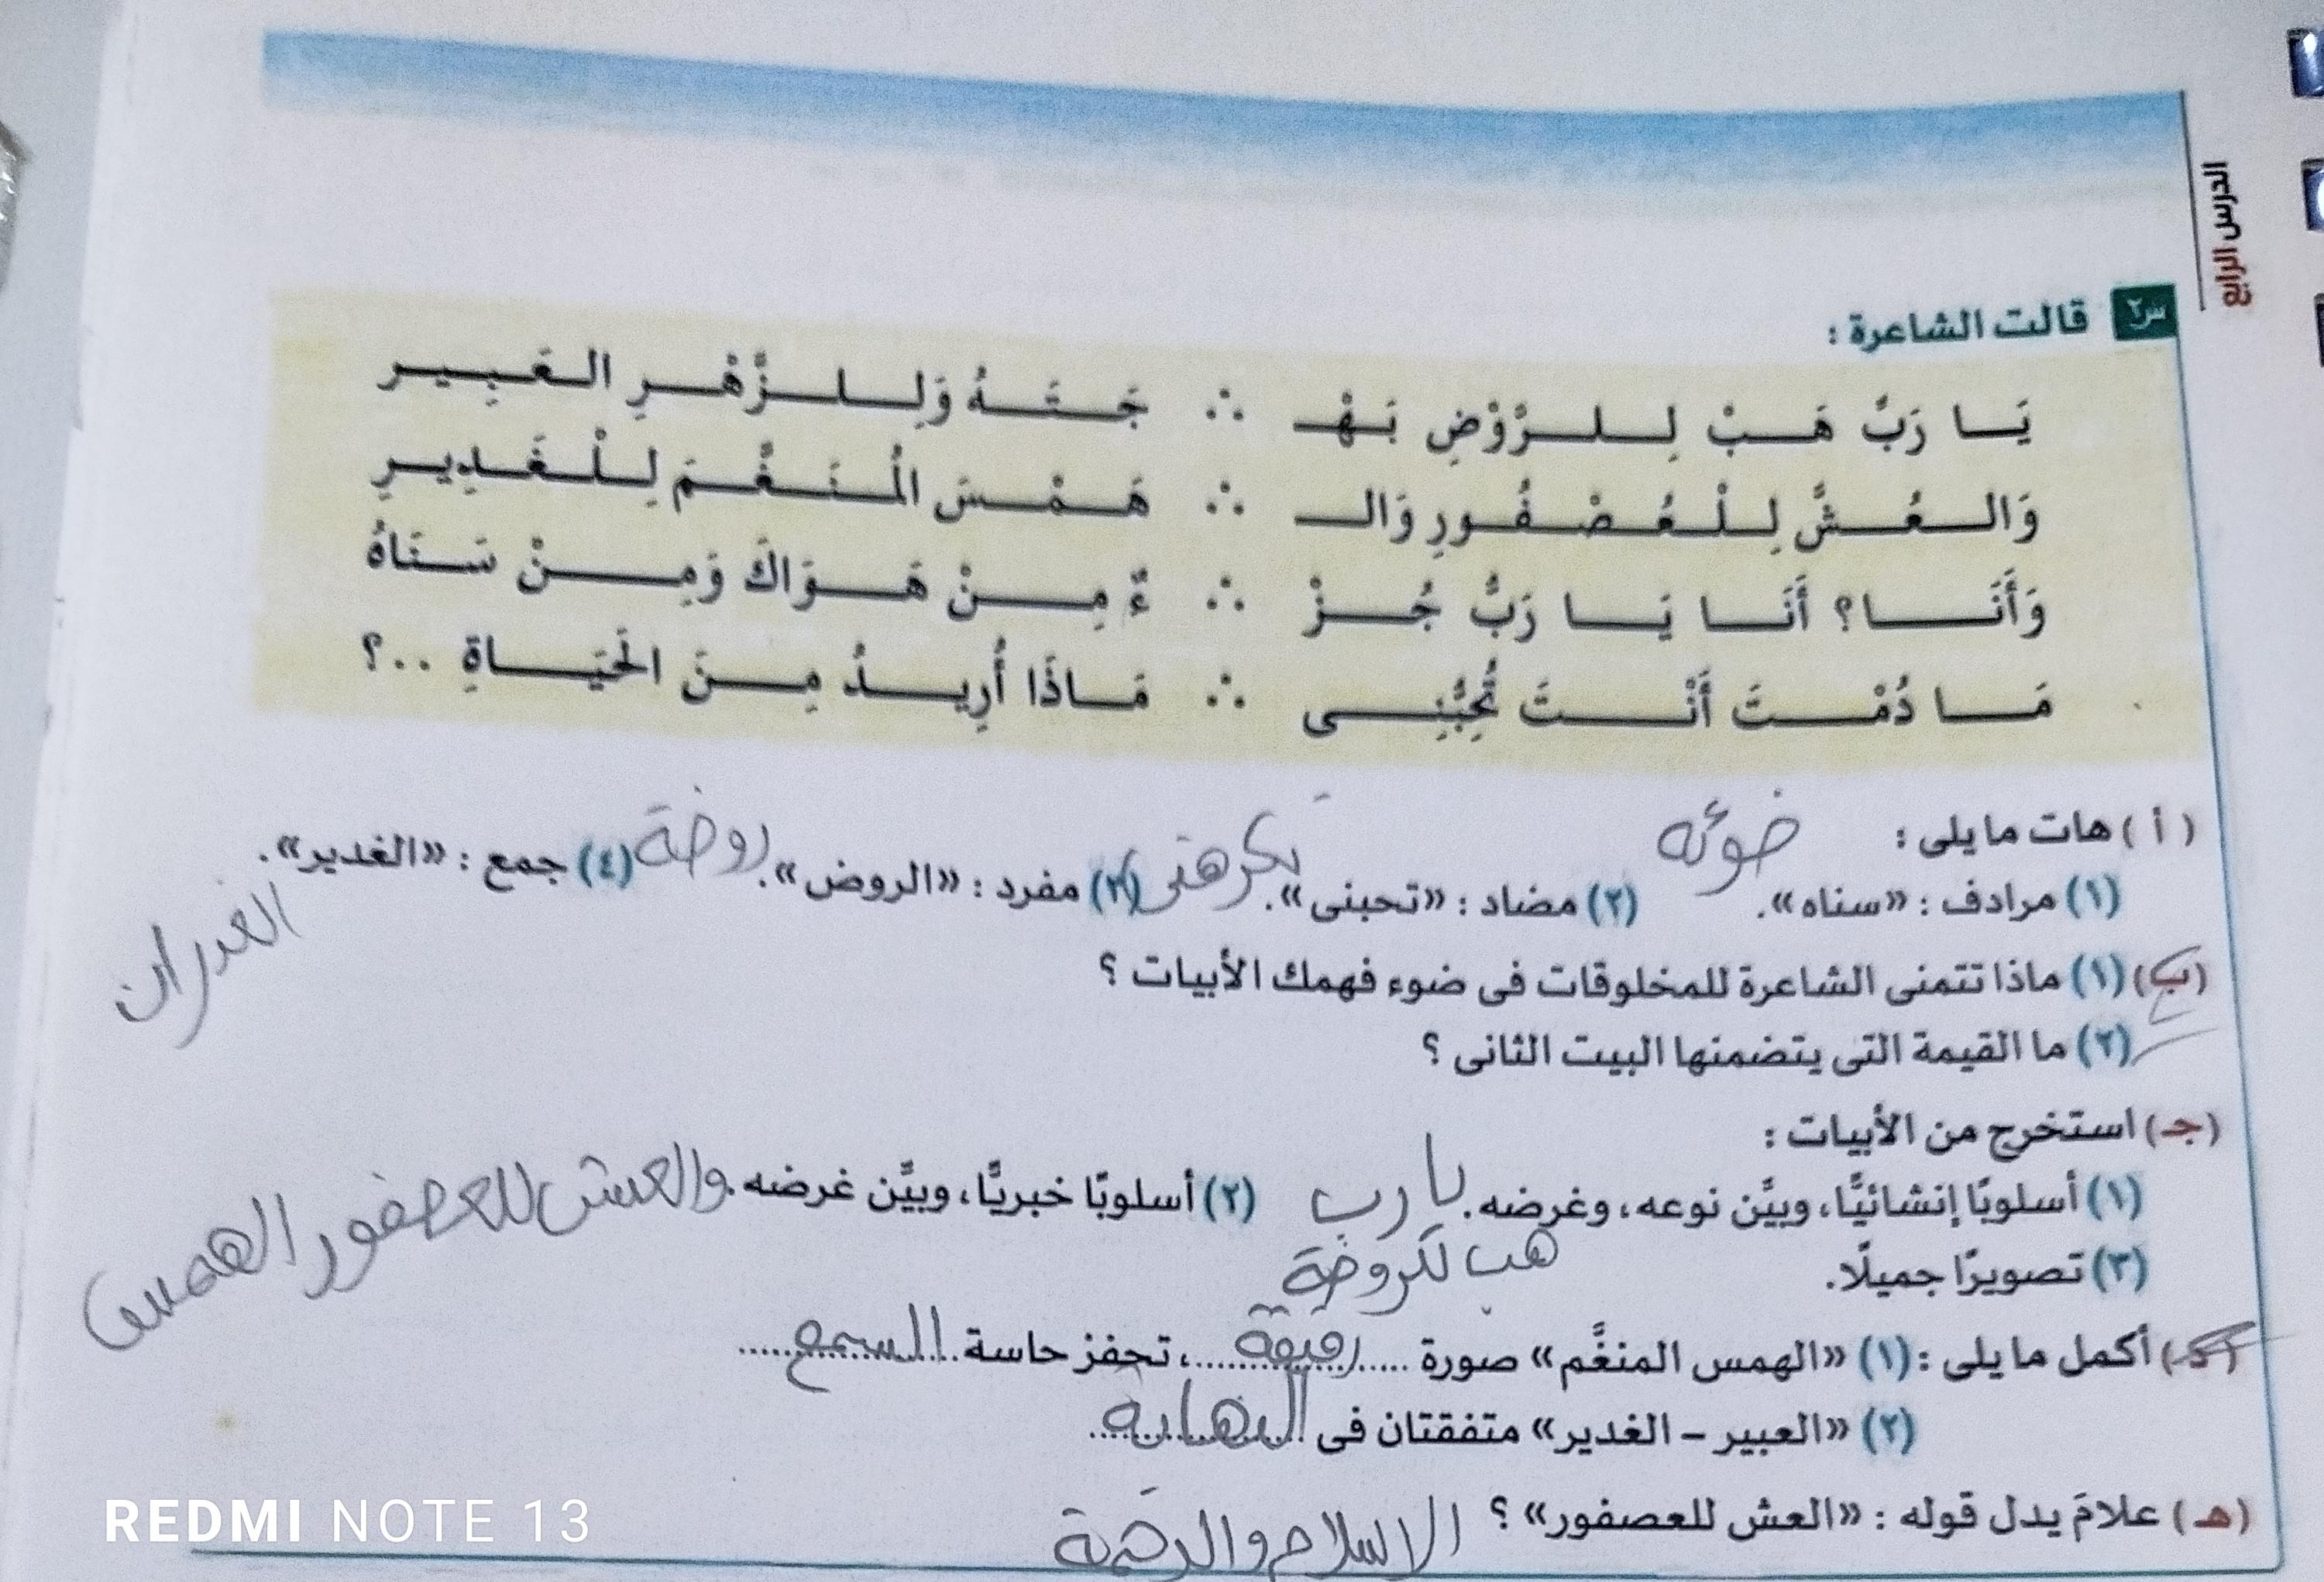 الدرس الرابع
س٢ قالت الشاعرة :
يَا رَبِّ هَبْ لِلرَّوْضِ بَهْـ ∴ جَتَهُ وَلِلزَّهْرِ العَبِير
وَالعُشَّ لِلْعُصْفُورِ وَالـ ∴ هَمْسَ الْمُنَغَّمَ لِلْغَدِيرِ
وَأَنَا؟ أَنَا يَا رَبُّ جُزْ ∴ ءٌ مِنْ هَوَاكَ وَمِنْ سَنَاهُ
مَا دُمْتَ أَنْتَ تُحِبُّنِى ∴ مَاذَا أُرِيدُ مِنَ الْحَيَاةِ ..؟
(أ) هات ما يلى :
(١) مرادف : «سناه». ضوئه (٢) مضاد : «تحبنى». تكرهنى (٣) مفرد : «الروض». روضة (٤) جمع : «الغدير». الغدران
(ب) (١) ماذا تتمنى الشاعرة للمخلوقات فى ضوء فهمك الأبيات ؟
(٢) ما القيمة التى يتضمنها البيت الثانى ؟
(جـ) استخرج من الأبيات :
(١) أسلوبًا إنشائيًّا، وبيَّن نوعه، وغرضه. يا رب (٢) أسلوبًا خبريًّا، وبيَّن غرضه. والعش للعصفور الهمس
هب لكروضة
(٣) تصويرًا جميلًا.
(د) أكمل ما يلى : (١) «الهمس المنغَّم» صورة رقيقة، تحفز حاسة السمع
(٢) «العبير – الغدير» متفقتان فى النهاية
(هـ) علامَ يدل قوله : «العش للعصفور» ؟ الاسلام والرحمة
REDMI NOTE 13